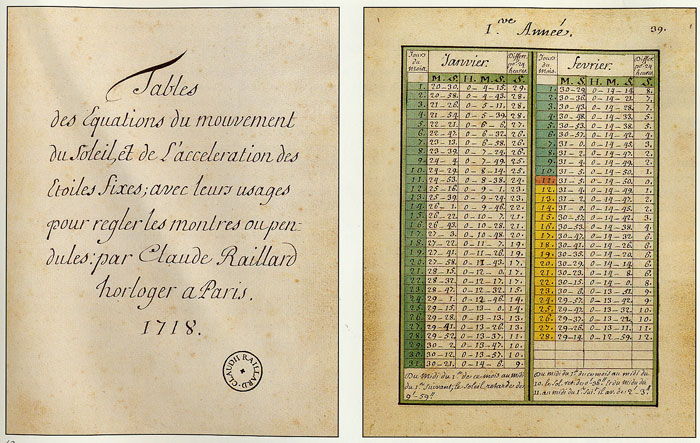 Tables
des Equations du mouvement
du Soleil, et de L'acceleration des
Etoiles Fixes; avec leurs usages
pour regler les montres ou pen-
dules: par Claude Raillard
horloger a Paris.
1718.
CLAUDE RAILLARD
I.ve Année.
39.
Jours du Mois. Janvier. Differ. pr. 24 heures Jours du Mois. Fevrier. Differ. pr. 24 heures
M. S. H. M. S. M. S. H. M. S.
1. 20-30. 0-4-15. 29. 1. 30-29. 0-14-14. 8.
2. 20-58. 0-4-43. 28. 2. 30-36. 0-14-21. 7.
3. 21-26. 0-5-11. 28. 3. 30-43. 0-14-28. 7.
4. 21-54. 0-5-39. 28. 4. 30-48. 0-14-33. 5.
5. 22-21. 0-6-6. 27. 5. 30-53. 0-14-38. 5.
6. 22-47. 0-6-32. 26. 6. 30-57. 0-14-42.
7. 23-13. 0-6-58. 26. 7. 31-0. 0-14-45. 3.
8. 23-39. 0-7-24. 26. 8. 31-2. 0-14-47. 2.
9. 24-4. 0-7-49. 25. 9. 31-4. 0-14-49. 2.
10. 24-29. 0-8-14. 25. 10. 31-5. 0-14-50. 1.
11. 24-53. 0-8-38. 24. 11. 31-5. 0-14-50. 0.
12. 25-16. 0-9-1. 23. 12. 31-4. 0-14-49. 1.
13. 25-39. 0-9-24. 23. 13. 31-2. 0-14-47. 2.
14. 26-1. 0-9-46. 22. 14. 31-0. 0-14-45. 2.
15. 26-22. 0-10-7. 21. 15. 30-57. 0-14-42. 3.
16. 26-43. 0-10-28. 21. 16. 30-53. 0-14-38. 4.
17. 27-3. 0-10-48. 20. 17. 30-47. 0-14-32. 6.
18. 27-22. 0-11-7. 19. 18. 30-41. 0-14-26. 6.
19. 27-40. 0-11-25. 18. 19. 30-35. 0-14-20. 6.
20. 27-58. 0-11-43. 20. 30-29. 0-14-14. 6.
21. 28-15. 0-12-0. 17. 21. 30-23. 0-14-8. 6.
22. 28-32. 0-12-17. 17. 22. 30-15. 0-14-0. 8.
23. 28-47. 0-12-32. 15. 23. 30-6. 0-13-51. 9.
24. 29-1. 0-12-46. 14. 24. 29-57. 0-13-42. 9.
25. 29-15. 0-13-0. 14. 25. 29-47. 0-13-32. 10.
26. 29-28. 0-13-13. 13. 26. 29-37. 0-13-22. 10.
27. 29-41. 0-13-26. 13. 27. 29-26. 0-13-11. 11.
28. 29-52. 0-13-37. 28. 29-14. 0-12-59. 12.
29. 30-2. 0-13-47. 10.
30. 30-12. 0-13-57. 10.
31. 30-21. 0-14-6. 9.
Du Midi du 1.er de ce mois au midi
du 1.er suivant; le soleil retarde de
9'-59".
Du midi du 1.er de ce mois au midi du
10. le Sol. ret. de 0'-36". & du Midi du
11. au midi du 1.er Sui.t il av. de 2'-3".